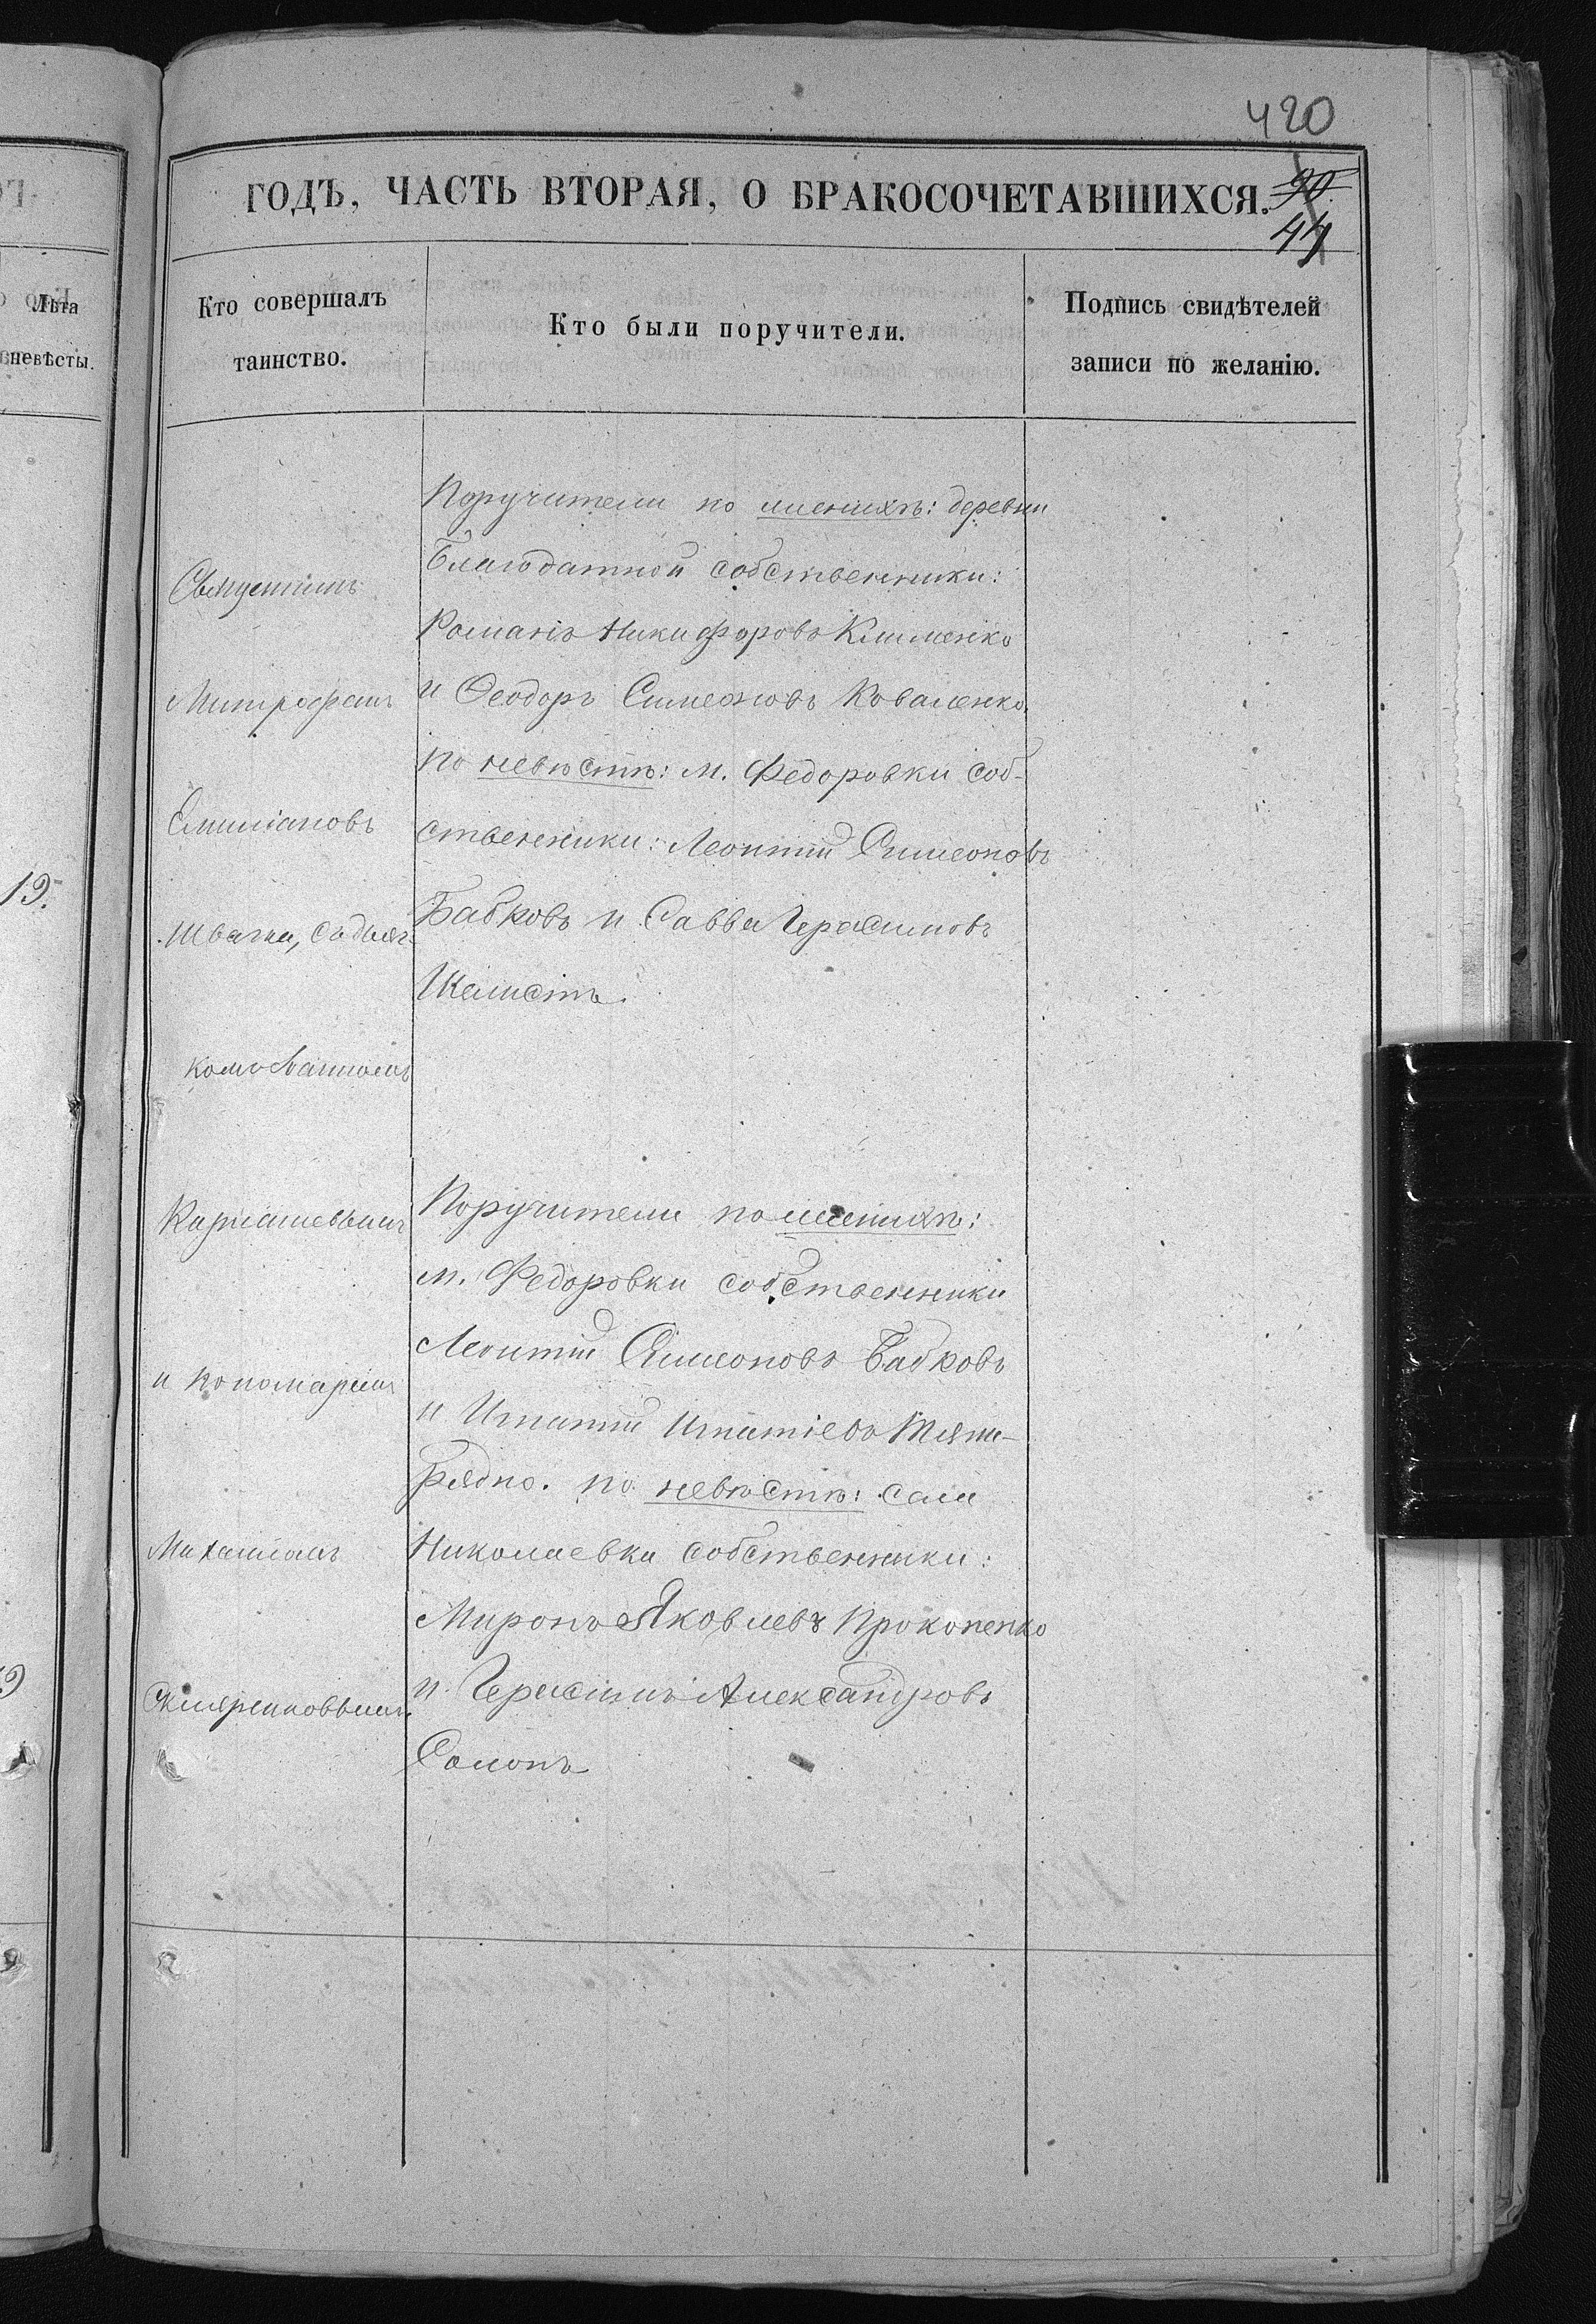 420
ГОДЪ, ЧАСТЬ ВТОРАЯ, О БРАКОСОЧЕТАВШИХСЯ.
44
Лѣта
невѣсты.
Кто совершалъ
таинство.
Кто были поручители.
Подпись свидѣтелей
записи по желанію.
19.
Священникъ
Митрофанъ
Емиліановъ
Швачка, съ діач
комъ
и пономаремъ
Михаиломъ
Скляренковымъ.
Поручители по женихѣ: деревни
Благодатной собственники:
Романъ Никифоровъ Клименко
и Ѳеодоръ Симеоновъ Коваленко.
по невѣстѣ: м. Федоровки соб-
ственники: Леонтій Симеоновъ
Бабковъ и Савва Герасимовъ
Поручители по женихѣ:
м. Федоровки собственники
Леонтій Симеоновъ Бабковъ
и Игнатій Игнатіевъ Тяни-
рядно. по невѣстѣ: села
Николаевки собственники:
Миронъ Яковлевъ Прокопенко
и Герасимъ Александровъ